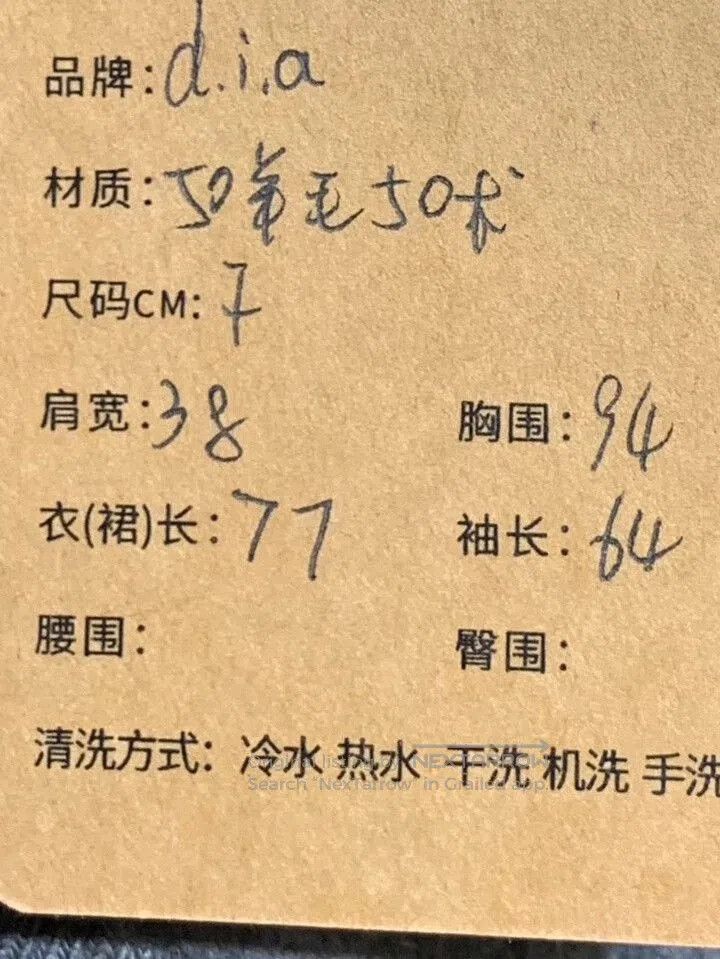 品牌：d.i.a
材质：50羊毛50
尺码CM：7
肩宽：38 胸围：94
衣(裙)长：77 袖长：64
腰围： 臀围：
清洗方式：冷水 热水 干洗 机洗 手洗
NEXTARROW
Search "Nextarrow" in Grailed app